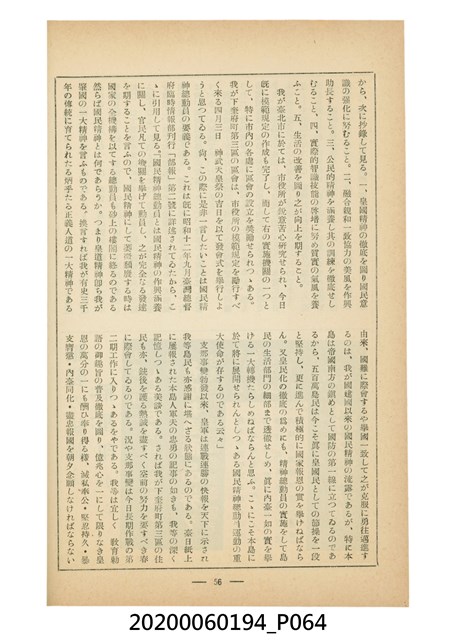 から、次に抄錄して見る。一、皇國精神の徹底を圖り國民意
識の强化に努むること。二、融合親和一致協力の美風を作興
助長すること。三、公民的精神を涵養し其の訓練を徹底せし
むること。四、實際的智識技能の啓培に努め質實の氣風を養
ふこと。五、生活の改善を圖り之が向上を期すること。
我が臺北市に於ては、市役所が銳意苦心研究せられ、今日
既に模範規定の作成も完了し、而して右の實施機關の一つと
して、特に市內の各處に區會の設立を獎勵せられつゝある。
我が下奎府町第三區の區會は、市役所の模範規定を勵行すべ
く來る四月三日　神武天皇祭の吉日を以て發會式を擧行しよ
うと思つてゐる。尙、この際に是非一言したいことは國民精
神總動員の要義である。これは既に昭和十二年九月臺灣總督
府臨時情報部刊行『部報』第二號に詳述されてゐたから、こ
ゝに引用して見る。『國民精神總動員とは國民精神の作興涵養
に關し、官民凡ての機關を擧げて動員し、之が完全なる發達
を期することを言ふので、國民精神にして萎靡頽廢する時は
國家の全機構を以てする總動員も砂上の樓閣に終るのである
然らば國民精神とは何であらうか。つまり皇道精神卽ち我が
肇國の一大精神を言ふものである。換言すれば我が有史三千
年の傳統に育てられたる炳乎たる正義人道の一大精神である
由來、國難に際會するや擧國一致して之が克服に勇往邁進す
るのは、我が國建國以來の國民精神の流露であるが、特に本
島は帝國南方の鎭めとして國防の第一線に立つてゐるのであ
るから、五百萬島民は今こそ眞に皇國民としての節操を一段
と堅持し、更に進んで積極的に國家報恩の實を擧げねばなら
ん。又皇民化の徹底の爲めにも、精神總動員の實施をして島
民の生活部門の細部まで透徹せしめ、眞に內臺一如の實を擧
ける一大轉機たらしめねばならんと思ふ。こゝにこそ本島に
於て將に展開せられんとしつゝある國民精神總動員運動の重
大使命が存するのである云々』
支那事變勃發以來、皇軍は連戰連勝の快報を天下に示され
我等島民も亦感謝に堪へざる狀態にあるのである。臺日紙上
に屢報された本島人軍夫の忠勇の記事の如きも、我等の深く
記憶しつゝある美談である。されば我が下奎府町第三區の住
民も亦、銃後を護る熱誠を盡すべく奮前の努力を要すべき春
に際會してゐるのである。況や支那事變は今日長期作戰の第
二期工作に入りつゝあるをやである。我等は宜しく、敎育勅
語の御趣旨の普及徹底を圖り、億兆心を一にして限りなき皇
恩の萬分の一にも酬ひ奉り得る樣、滅私奉公・堅忍持久・暴
支膺懲・內臺同化・盡忠報國を朝夕念願しなければならない
— 56 —
20200060194_P064